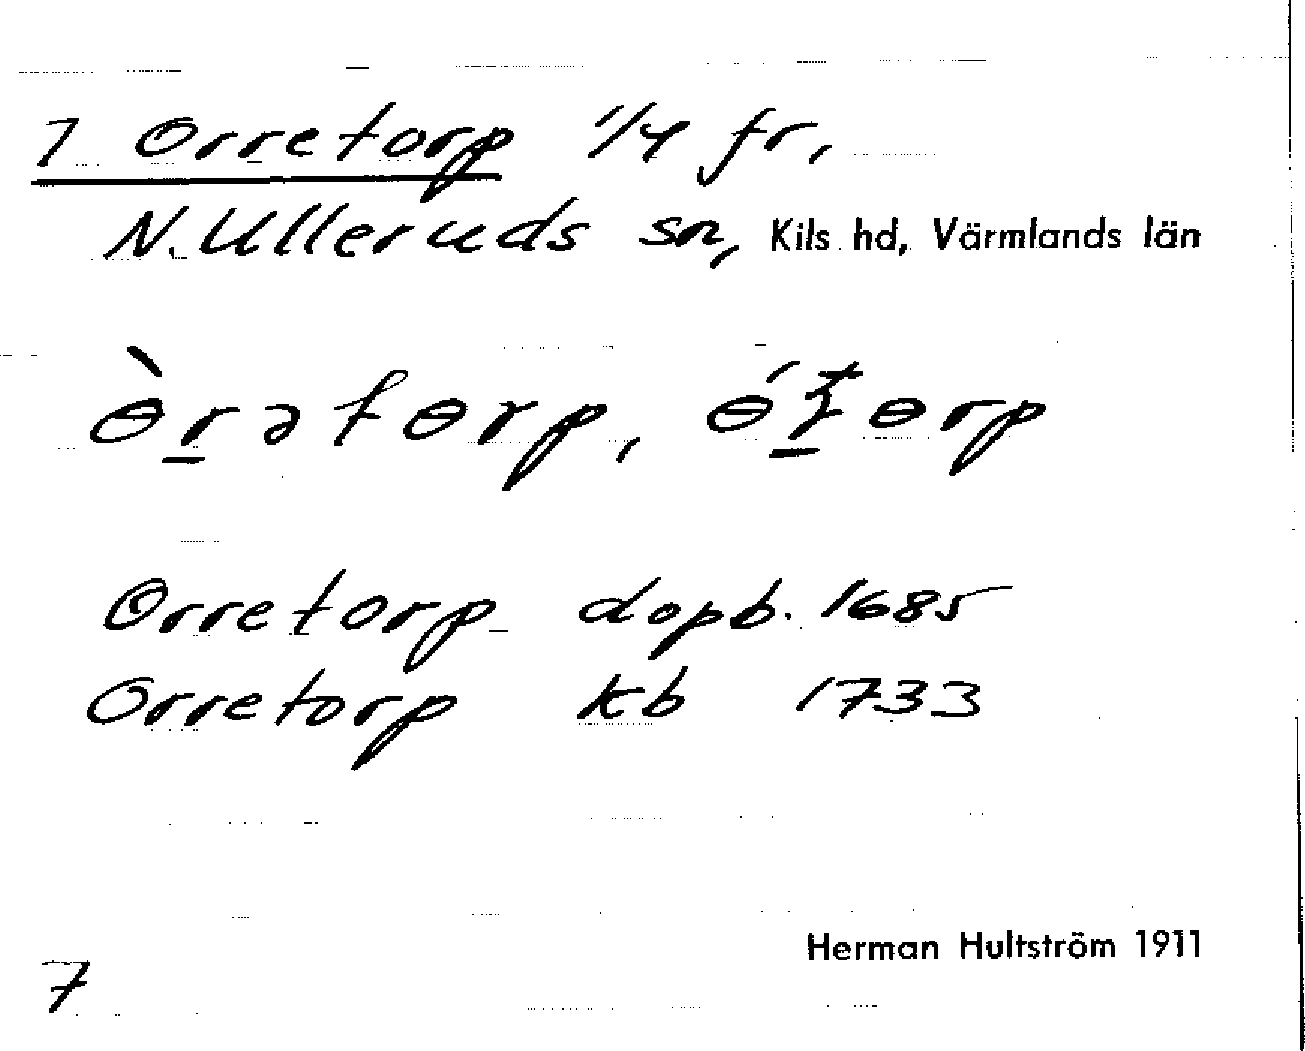 7 Orretorp 1/4 fr,
N. Ulleruds sn, Kils hd, Värmlands län
ɵ̀r̲ətɵrp,
Orretorp dopb. 1685
Orretorp kb 1733
Herman Hultström 1911
7